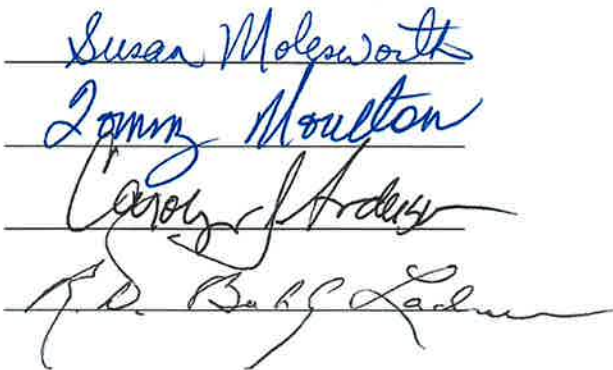 Susan Molesworth
Tommy Moulton
Carolyn J Anderson
R. D. Ladner